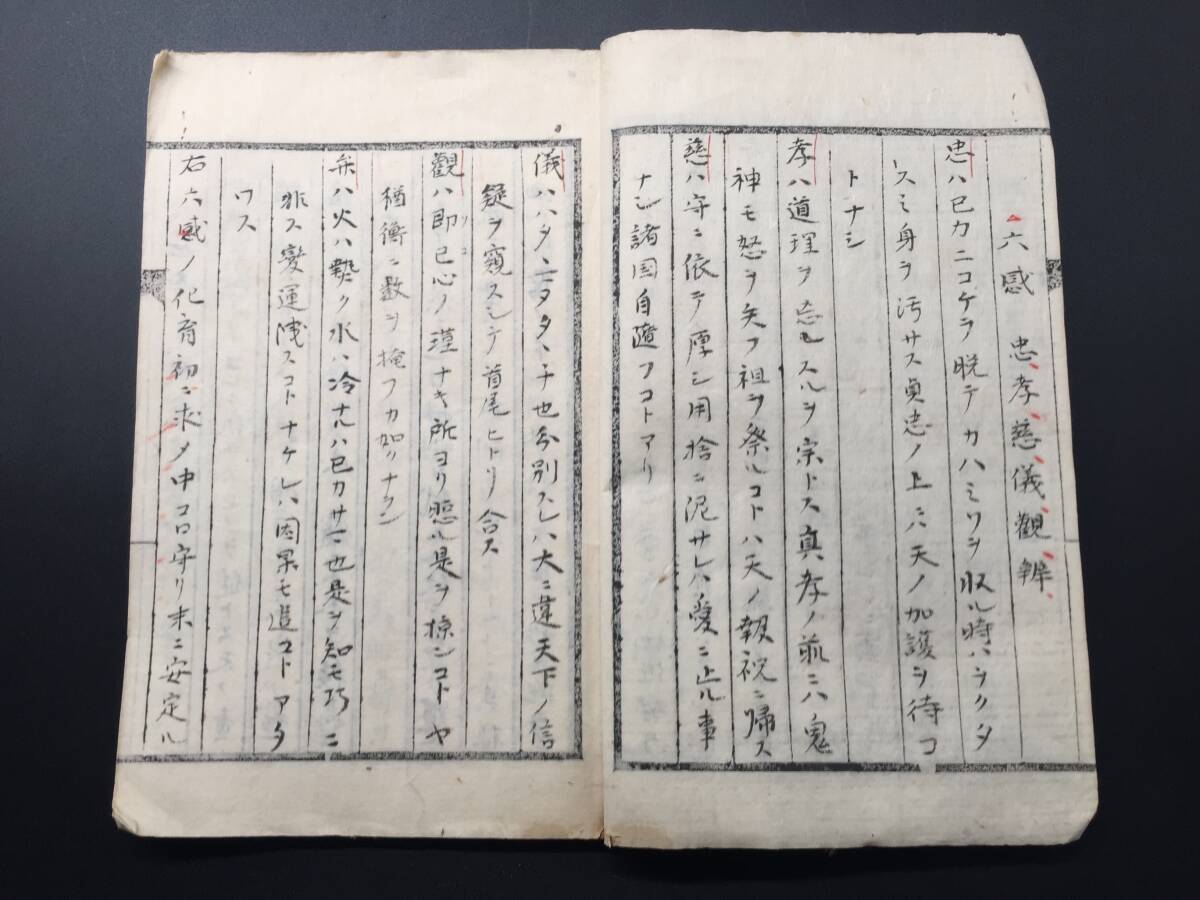 六感 忠、孝、慈、儀、觀、辨、
忠ハ已カニコケラ晩テカハミワヲ收ル時ハラクタ
スミ身ヲ汚サス貞忠ノ上ニハ天ノ加護ヲ待コ
トナシ
孝ハ道理ヲ忘レスルヲ宗トス真孝ノ前ニハ鬼
神モ怒ヲ矢フ祖ヲ祭ルコトハ天ノ報祝ニ帰ス
慈ハ守ニ依テ厚シ用捨ニ泥サレハ愛ニ止ル事
ナシ諸国自遊フコトマリ
儀ハハタヽニタタヽチ也分別スレハ大ニ違天下ノ信
疑ヲ窺スシテ首尾ヒトリ合ス
觀ハ即已心ノ瑾ナキ所ヨリ照ル是ヲ掠ンコトヤ
猶衡ニ數ヲ掩フカ如クナラン
弁ハ火ハ熱ク水ハ冷ナルハ已カサマ也是ヲ知モ巧ニ
非ス變運浅スコトナケレハ因果モ追コトアタ
ワス
右六感ノ化育初ニ求メ中コロ守リ末ニ安定ル